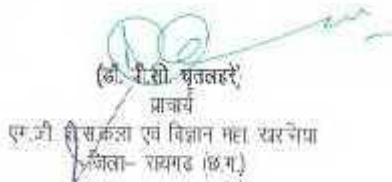 (डॉ. पी.सी. घृतलहरे)
प्राचार्य
एम.जी. कला एवं विज्ञान महा. खरसिया
जिला- रायगढ (छ.ग.)